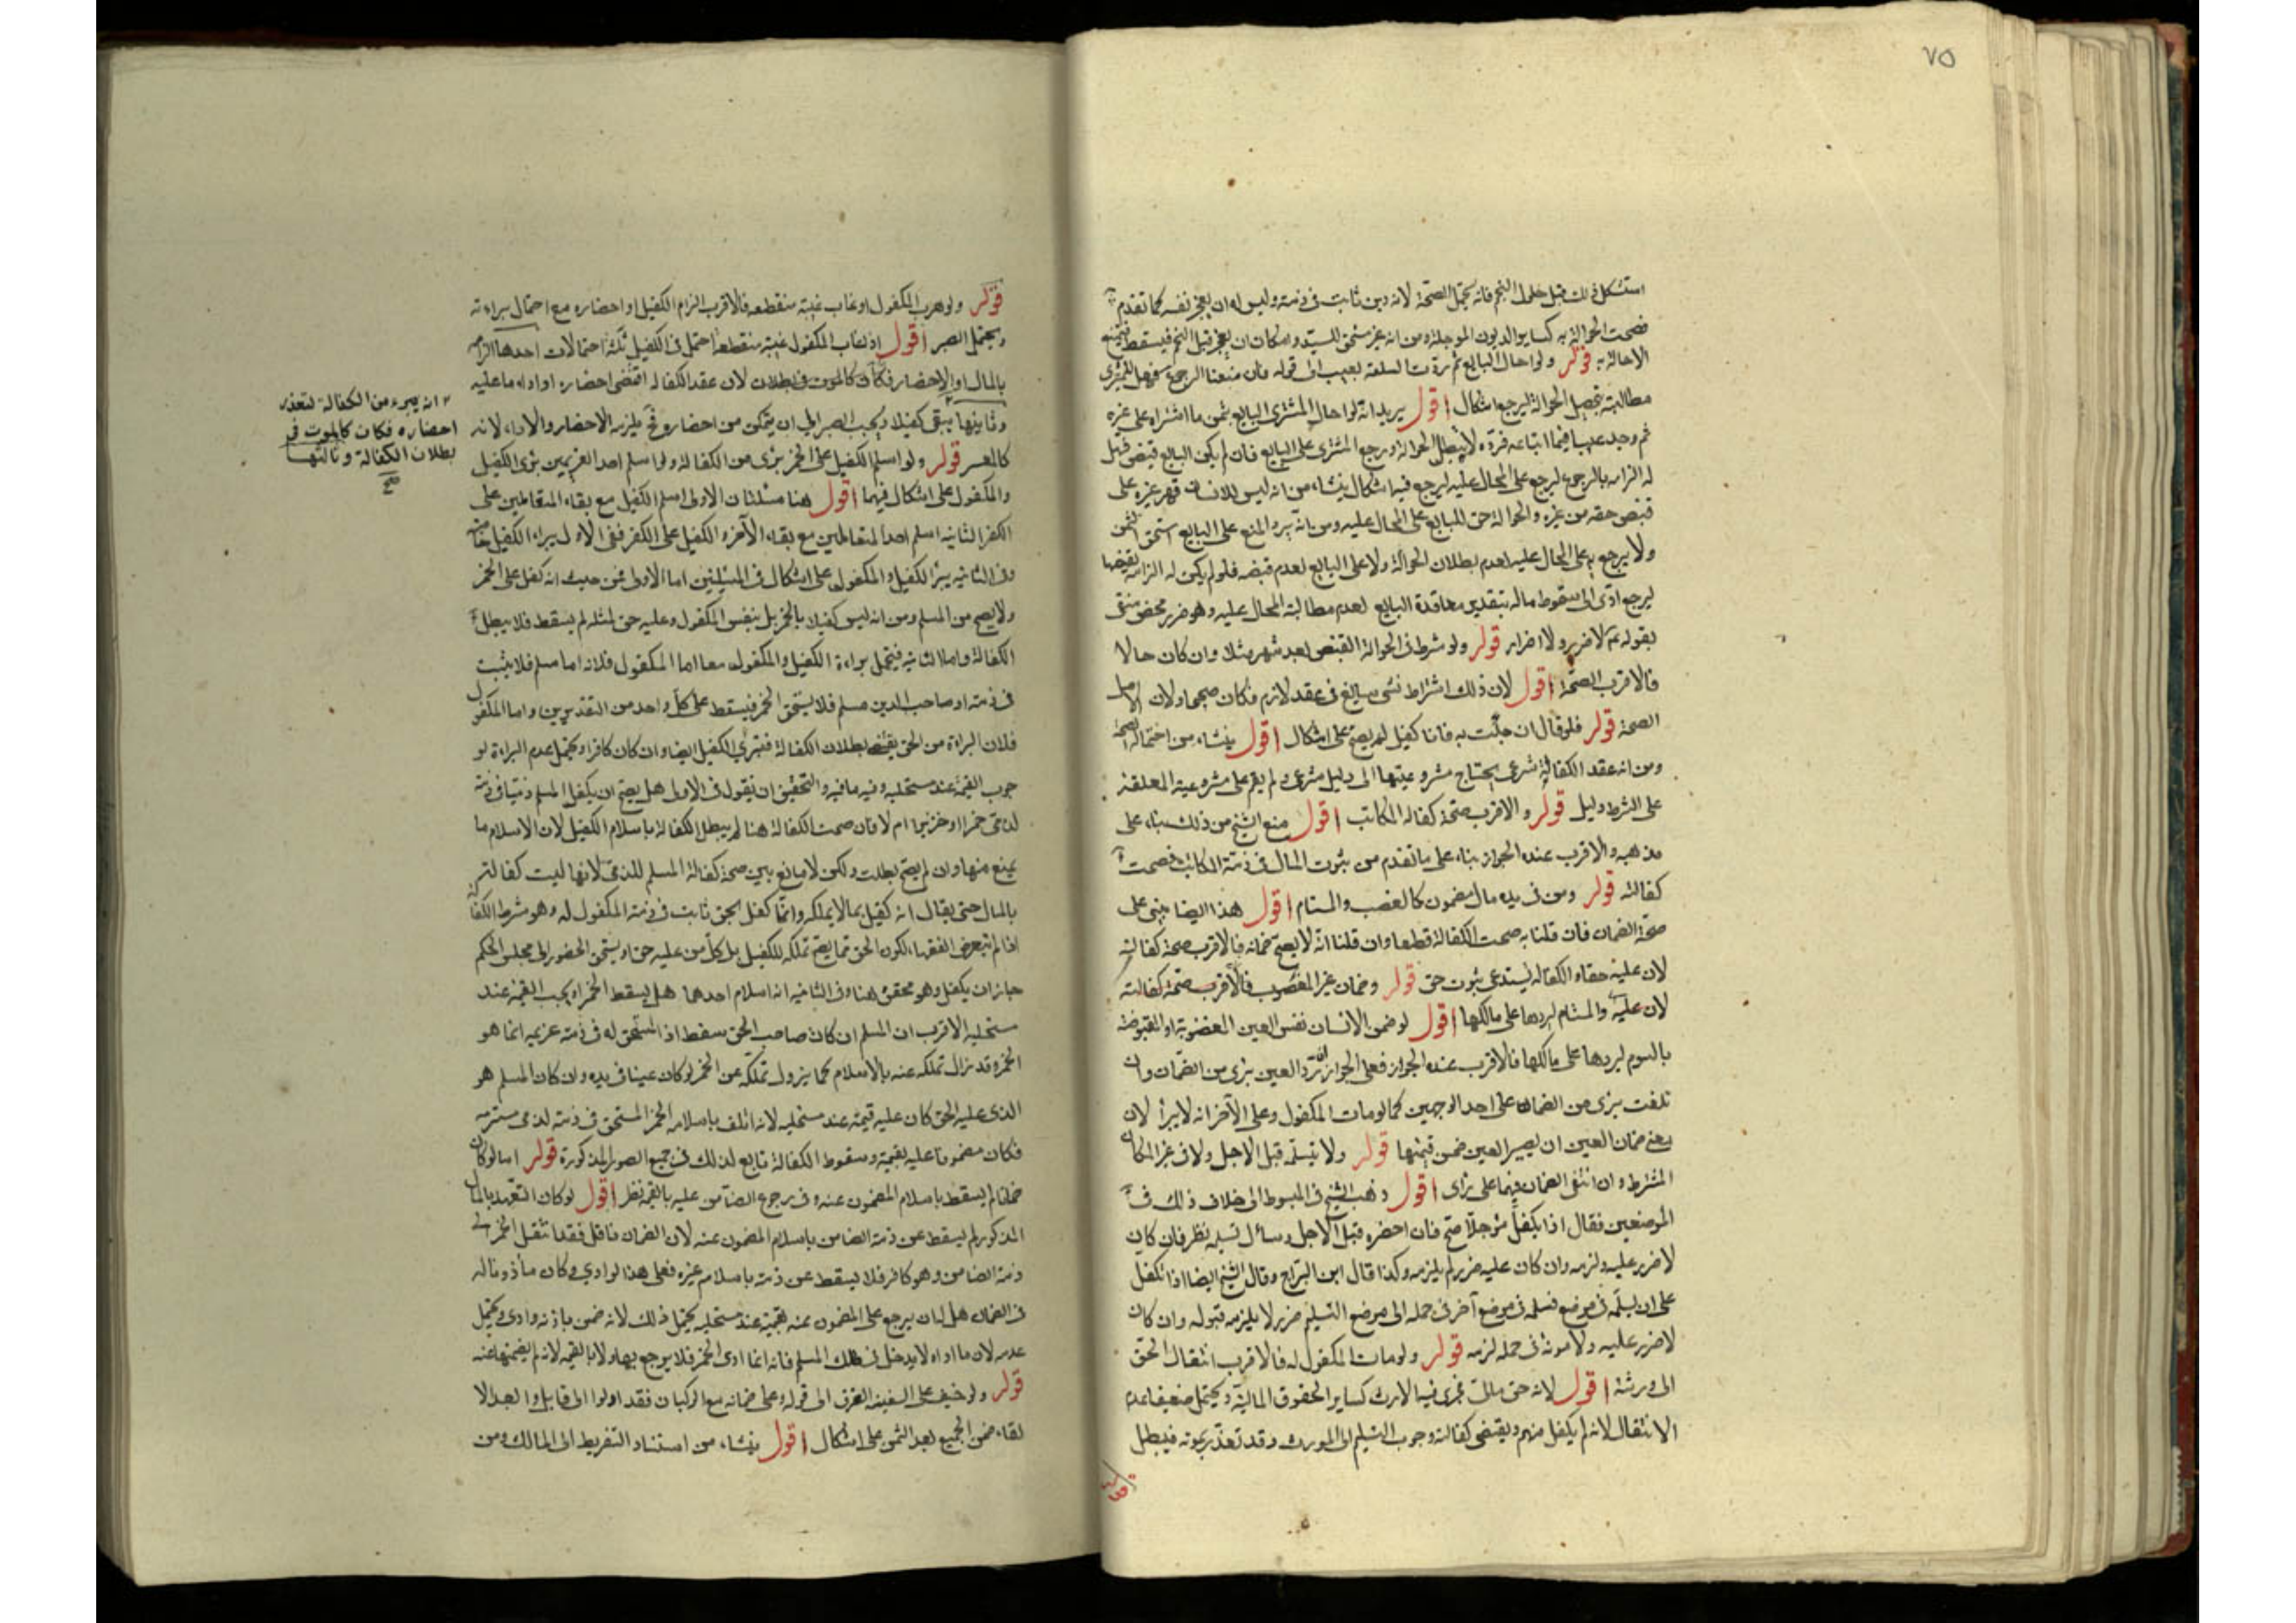 ٧٥
استشكل ذلك قبل حلول النجم فانه يحتمل الصحة لانه دين ثابت في ذمته وليس له ان يعجز نفسه كما تقدم
فصحت الحوالة به كساير الديون الموجلة ومن انه غير مستحق للسيد وامكان ان يعجز قبل النجم فيسقط فيمتنع
الاحالة به قوله ولو احال البايع ثم ردت السلعة بعيب الى قوله فان منعنا الرجوع فهل للمشترى
مطالبته بتحصيل الحوالة ليرجع اشكال اقول يريد انه لو احال المشترى البايع بثمن ما اشتراه على غيره
ثم وجد عيبا فيما ابتاعه فرده لا يبطل الحوالة ورجع المشترى على البايع فان لم يكن البايع قبض فهل
له الزامه بالرجوع ليرجع على المحال عليه ليرجع فيه اشكال ينشاء من انه ليس للانسان قهر غيره على
قبض حقه من غيره والحوالة حق للبايع على المحال عليه ومن انه يرد المنع على البايع استحق الثمن
ولا يرجع به على المحال عليه لعدم بطلان الحوالة ولا على البايع لعدم قبضه فلو لم يكن له الزامه بقبضها
ليرجع ادى الى سقوط ماله بتقدير معاقدة البايع لعدم مطالبة المحال عليه وهو ضرر محض منفى
بقوله لا ضرر ولا اضرار قوله ولو شرط في الحوالة القبض بعد شهر مثلا وان كان حالا
فالاقرب الصحة اقول لان ذلك اشتراط شى سايغ في عقد لازم فكان صحيحا ولان الاصل
الصحة قوله فلو قال ان جئت به فانا كفيل لم يصح على اشكال اقول ينشاء من احتمال الصحة
ومن انه عقد الكفالة شرعى يحتاج مشروعيتها الى دليل شرعى ولم يقم على مشروعية المعلقة
على الشرط دليل قوله والاقرب صحة كفالة المكاتب اقول منع الشيخ من ذلك بناء على
مذهبه والاقرب عنده الجواز بناء على ما تقدم من ثبوت المال في ذمة المكاتب فصحت
كفالته قوله ومن في يده مال مضمون كالغصب والمستام اقول هذا ايضا يبنى على
صحة الضمان فان قلنا به صحت الكفالة قطعا وان قلنا انه لا يصح ضمانه فالاقرب صحة كفالته
لان عليه حقا والكفالة يستدعى ثبوت حق قوله وضمان عين المغصوب فالاقرب صحة كفالته
لان عليه والمستام ليردها على مالكها اقول لو ضمن الانسان نفس العين المغصوبة او المقبوضة
بالسوم ليردها على مالكها فالاقرب عنده الجواز فعلى الجواز ان رد العين برى من الضمان وان
تلفت برى من الضمان على احد الوجهين كما لو مات المكفول وعلى الآخر انه لا يبرأ لان
معنى ضمان العين ان يصير العين ضمن قيمتها قوله ولا يتسلمه قبل الاجل ولا في غير المكان
المشترط وان انتفى الضمان فيهما على راى اقول وذهب الشيخ في المبسوط الى خلاف ذلك في
الموضعين فقال اذا يكفل مؤجلا صح فان احضره قبل الاجل وسأل تسلمه نظر فان كان
لا ضرر عليه لزمه وان كان عليه ضرر لم يلزمه وكذا قال ابن البراج وقال الشيخ ايضا اذا تكفل
على ان يسلمه في موضع فسلمه في موضع آخر في حمله الى موضع التسليم ضرر لا يلزمه قبوله وان كان
لا ضرر عليه ولا مونة في حمله لزمه قوله ولو مات المكفول له فالاقرب انتقال الحق
الى ورثته اقول لانه حق مالى تجرى فيه الارث كساير الحقوق المالية ويحتمل ضعيفا عدم
الانتقال لانه لم يكفل منهم ويقتضى كفالته وجوب التسليم الى المورث وقد تعذر بموته فيبطل
قوله
قوله ولو هرب المكفول او غاب غيبة منقطعة فالاقرب الزام الكفيل او احضاره مع احتمال براءته
ويحتمل الصبر اقول اذا غاب المكفول غيبة منقطعة احتمل في الكفيل ثلثة احتمالات احدها الزامه
بالمال او الاحضار فكان كالموت في بطلان لان عقد الكفالة اقتضى احضاره او اداء ما عليه
وثانيها يبقى كفيلا ويجب الصبر الى ان يتمكن من احضاره فح يلزمه الاحضار والاداء لانه
كالمعسر قوله ولو اسلم الكفيل على الخمر برى من الكفالة ولو اسلم احد الغريمين برى الكفيل
والمكفول على اشكال فيهما اقول هنا مسئلتان الاولى اسلم الكفيل مع بقاء المتقابلين على
الكفر الثانية اسلم احد المتقابلين مع بقاء الآخر والكفيل على الكفر ففى الاولى يبراء الكفيل خاصة
وفي الثانية يبرأ الكفيل والمكفول على اشكال في المسئلتين اما الاولى فمن حيث انه كفل على الخمر
ولا يصح من المسلم ومن انه ليس كفيلا بالخمر بل بنفس المكفول وعليه حق لمثله لم يسقط فلا يبطل
الكفالة واما الثانية فيحتمل براءة الكفيل والمكفول معا اما المكفول فلانه اما مسلم فلا يثبت
في ذمته او صاحب الدين مسلم فلا يستحق الخمر فيسقط على كل واحد من التقديرين واما المكفول
فلان البراءة من الحق يقتضى بطلان الكفالة فتبرى الكفيل ايضا وان كان كافرا ويحتمل عدم البراءة لو
جوب القيمة عند مستحليه وفيه ما فيه والتحقيق ان يقول في الاولى هل يصح ان يكفل المسلم ذميا في ذمته
لذمى خمرا او خنزيرا ام لا فان صحت الكفالة هنا لم يبطل الكفالة باسلام الكفيل لان الاسلام ما
يمنع منها وان لم يصح بطلت ولكن لا مانع بين صحة كفالة المسلم للذمى لانها ليست كفالته
بالمال حتى يقال انه كفيل بما لا يملكه وانما كفل لحق ثابت في ذمة المكفول له وهو شرط الكفالة
اذ لم يتعرض الفقهاء لكون الحق مما يصح تملكه للكفيل بل كل من عليه حق او يستحق الحضور الى مجلس الحكم
جاز ان يكفل وهو محقق هنا وفي الثانية اذا اسلام احدهما هل يسقط الخمر او يجب القيمة عند
مستحليه الاقرب ان المسلم ان كان صاحب الحق سقط اذ المستحق له في ذمة غريمه انما هو
الخمر وقد زال تملكه عنه بالاسلام كما يزول تملكه عن الخمر لو كان عينا في يده وان كان المسلم هو
الذى عليه الحق كان عليه قيمته عند مستحليه لانه اتلف باسلامه الخمر المستحق في ذمته لذمى مستتر به
فكان مضمونا عليه بقيمته وسقوط الكفالة تابع لذلك في جميع الصور المذكورة قوله اما لو كان
ضمانا لم يسقط باسلام المضمون عنه وفي رجوع الضامن عليه بالقيمة نظر اقول لو كان التعهد بالمال
المذكور لم يسقط عن ذمة الضامن باسلام المضمون عنه لان الضمان ناقل فقد انتقل الخمر الى
ذمة الضامن وهو كافر فلا يسقط عن ذمته باسلام غيره فعلى هذا لو ادى وكان ماذونا له
في الضمان هل له ان يرجع على المضمون عنه بقيمته عند مستحليه يحتمل ذلك لانه ضمن باذنه وادى ويحتمل
عدمه لان ما اداه لا يدخل في ملك المسلم فانه انما ادى الخمر فلا يرجع بها ولا بالقيمة لانه لم يضمنها عنه
قوله ولو خيف على السفينة الغرق الى قوله وعلى ضمانه مع الركبان فقد اولوا الى قابل والعبد الا
لقاء ضمن الجميع بعد الثمن على اشكال اقول ينشاء من استناد التفريط الى المالك ومن
انه يبرء من الكفالة لتعذر
احضاره فكان كالموت في
بطلان الكفالة وثالثها
صح